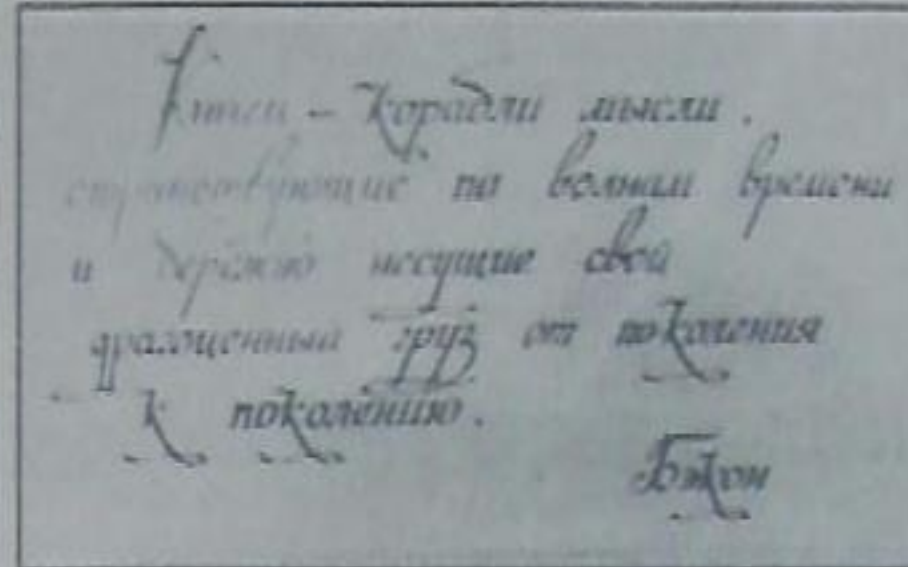 Книги - корабли мысли,
странствующие по волнам времени
и бережно несущие свой
драгоценный груз от поколения
к поколению.
Бэкон